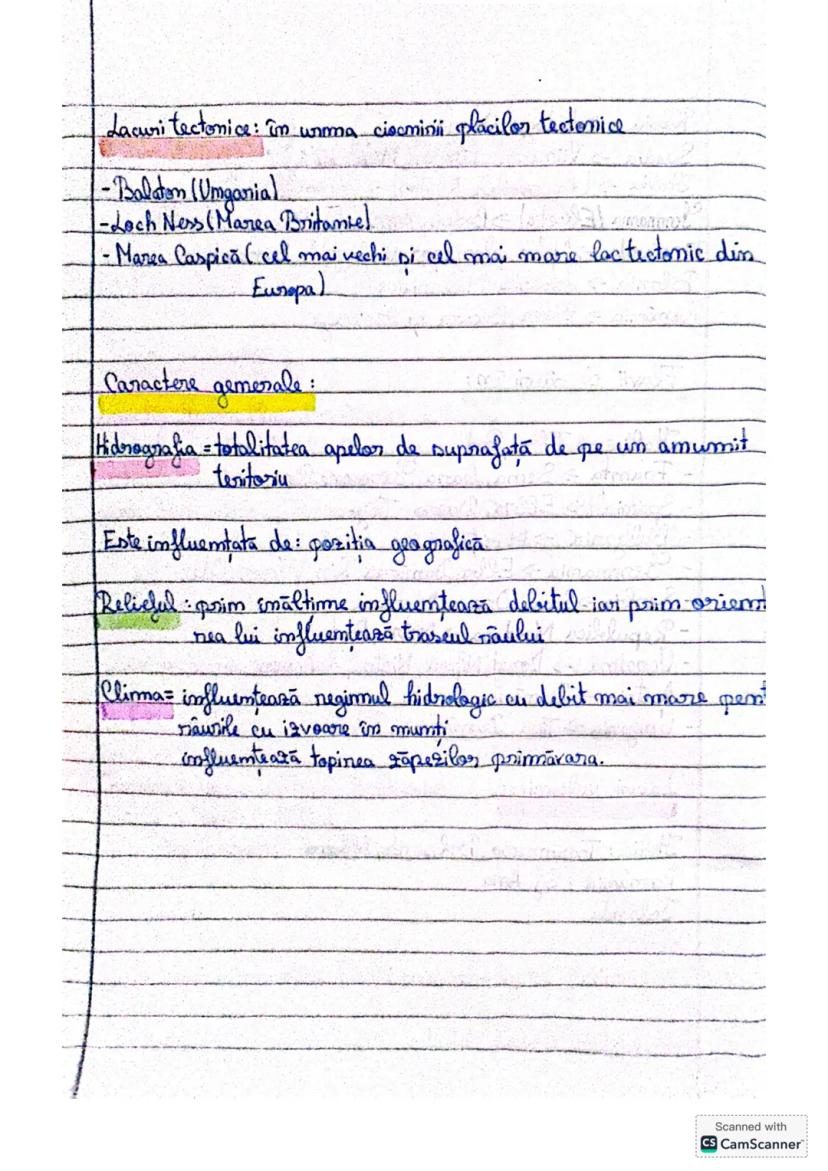 Lacuri tectonice: în urma ciocnirii plăcilor tectonice
- Balaton (Ungaria)
- Loch Ness (Marea Britanie)
- Marea Caspică ( cel mai vechi și cel mai mare lac tectonic din
Europa)
Caractere generale:
Hidrografia = totalitatea apelor de suprafață de pe un anumit
teritoriu
Este influențată de: poziția geografică
Relieful : prin înălțime influențează debitul iar prin orient
rea lui influențează traseul râului
Clima = influențează regimul hidrologic cu debit mai mare pent
râurile cu izvoare în munți
influențează topirea zăpezilor primăvara.
Scanned with
CS CamScanner